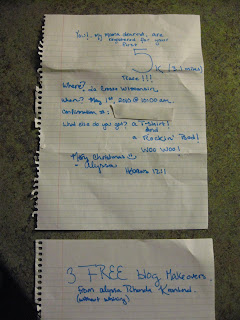 You! my mama dearest, are
registered for your
first
5
K (3.1 miles)
Race!!!
Where? La Crosse Wisconsin
When? May 1st, 2010 @ 10:00 am.
Confirmation #:
What else do you get? a T-Shirt!
And
a Rockin' Food!
Woo Woo!
Merry Christmas
Alyssa
Hebrews 12:1
3 FREE blog Makeovers.
from alyssa Rhonda
(without whining)